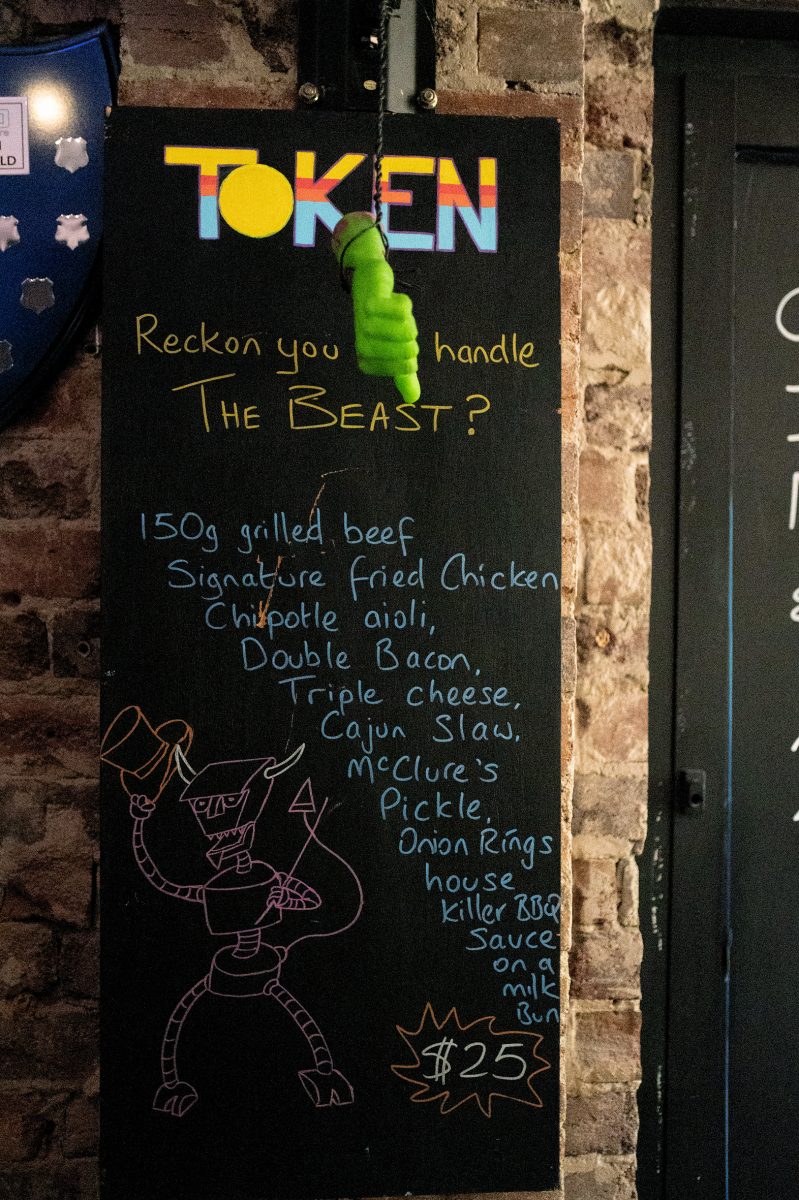 TOKEN
Reckon you handle
THE BEAST?
150g grilled beef
Signature fried Chicken
Chipotle aioli,
Double Bacon,
Triple cheese,
Cajun Slaw,
McClure's
Pickle,
Onion Rings
house
Killer BBQ
Sauce
on a
milk
Bun
$25
LD